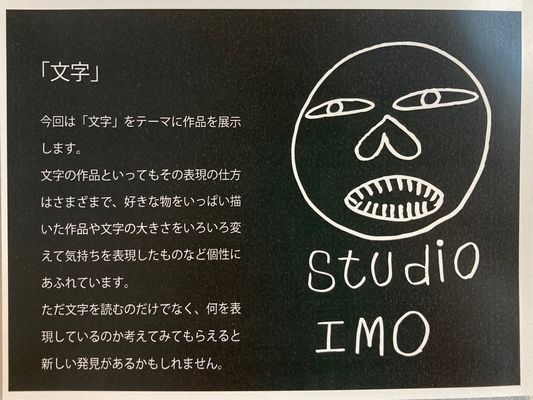 「文字」
今回は「文字」をテーマに作品を展示
します。
文字の作品といってもその表現の仕方
はさまざまで、好きな物をいっぱい描
いた作品や文字の大きさをいろいろ変
えて気持ちを表現したものなど個性に
あふれています。
ただ文字を読むのだけでなく、何を表
現しているのか考えてみてもらえると
新しい発見があるかもしれません。
StUdiO
IMO